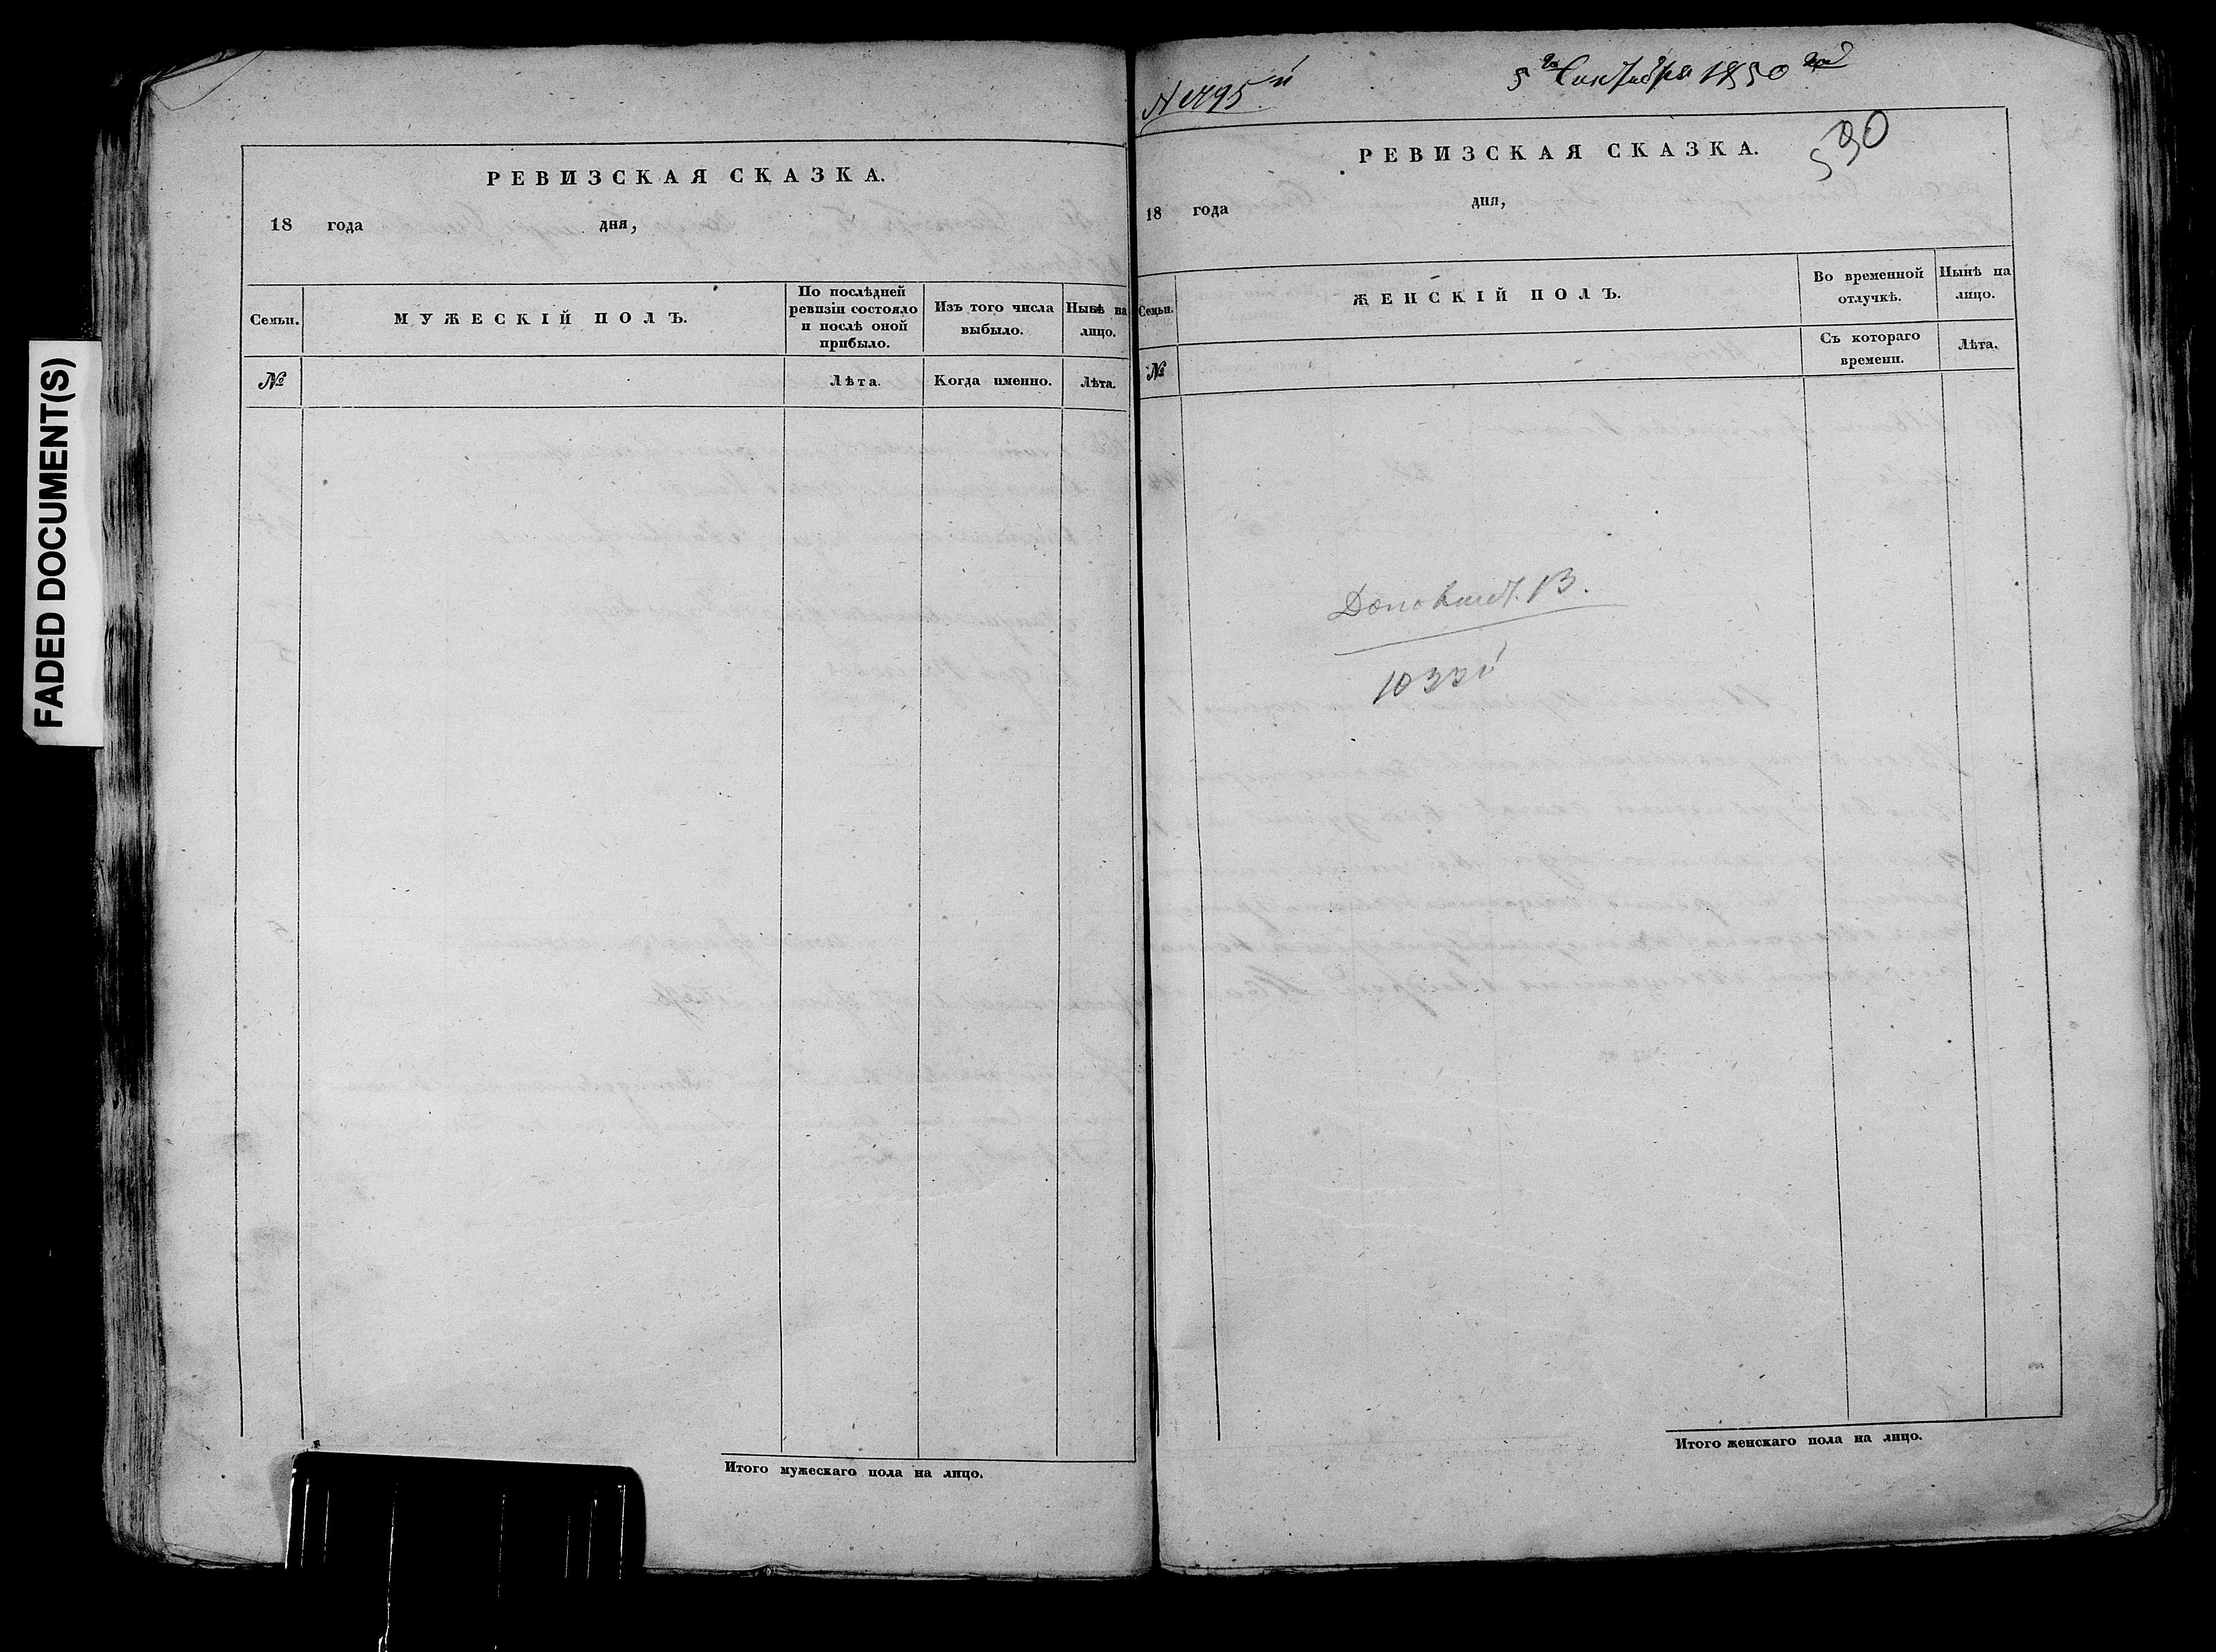 FADED DOCUMENT(S)
РЕВИЗСКАЯ СКАЗКА.
18 года дня,
Семьи.
МУЖЕСКІЙ ПОЛЪ.
По послѣдней
ревизіи состояло
и послѣ оной
прибыло.
Изъ того числа
выбыло.
Нынѣ на
лицо.
№
Лѣта.
Когда именно.
Лѣта.
Итого мужескаго пола на лицо.
5 го Сентября 1850 года
РЕВИЗСКАЯ СКАЗКА.
590
18 года дня,
Семьи.
ЖЕНСКІЙ ПОЛЪ.
Во временной
отлучкѣ.
Нынѣ на
лицо.
№
Съ котораго
времени.
Лѣта.
Итого женскаго пола на лицо.